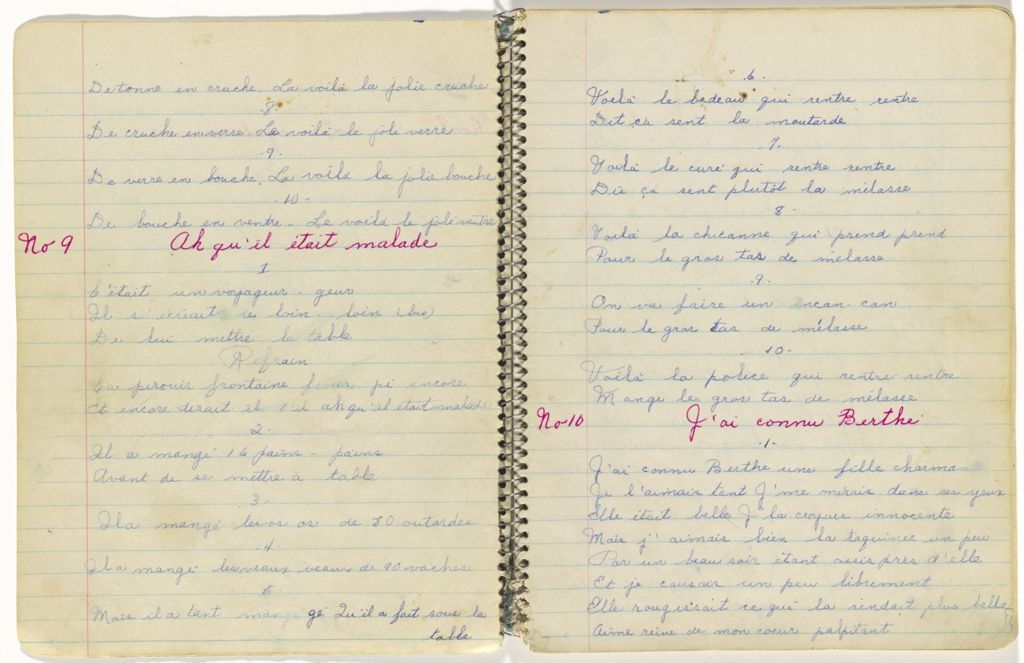 De tonne en cruche. La voilà la jolie cruche
.8.
De cruche en verre. Le voilà le joli verre
-9.
De verre en bouche. La voilà la jolie bouche
.10-
De bouche en ventre - Le voilà le joli ventre
No 9 Ah qu'il était malade
1
C'était un voyageur - geur
Il s'écriait de loin - loin (bis)
De lui mettre la table
Refrain
La pirouis frontaine pi encore
Et encore dirait il ah qu'il était malade
2-
Il a mangé 16 pains - pains
Avant de se mettre à table
3-
Il a mangé les os os de 80 outardes
4
Il a mangé les veaux veaux de 90 vaches
5
Mais il a tant mangé Qu'il a fait sous la
table
.6.
Voilà le bedeau qui rentre rentre
Dit ça sent la moutarde
.7.
Voilà le curé qui rentre rentre
Dis ça sent plutôt la mélasse
8-
Voilà la chicanne qui prend prend
Pour le gros tas de mélasse
.9.
On va faire un encan. can
Pour le gros tas de mélasse
.10-
Voilà la police qui rentre rentre
Mange le gros tas de mélasse
No 10 J'ai connu Berthe
.1.
J'ai connu Berthe une fille charman
Je l'aimais tant J'me mirais dans ses yeux
Elle était belle J la croyais innocente
Mais j'aimais bien la taquiner un peu
Par un beau soir étant assis près d'elle
Et je causais un peu librement
Elle rougissait ce qui la rendait plus belle
Aime reine de mon coeur palpitant